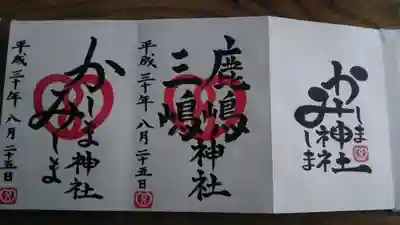 かしま
みしま
神社
鹿嶋
三嶋
神社
平成三十年八月二十五日
かしま
みしま
神社
平成三十年八月二十五日